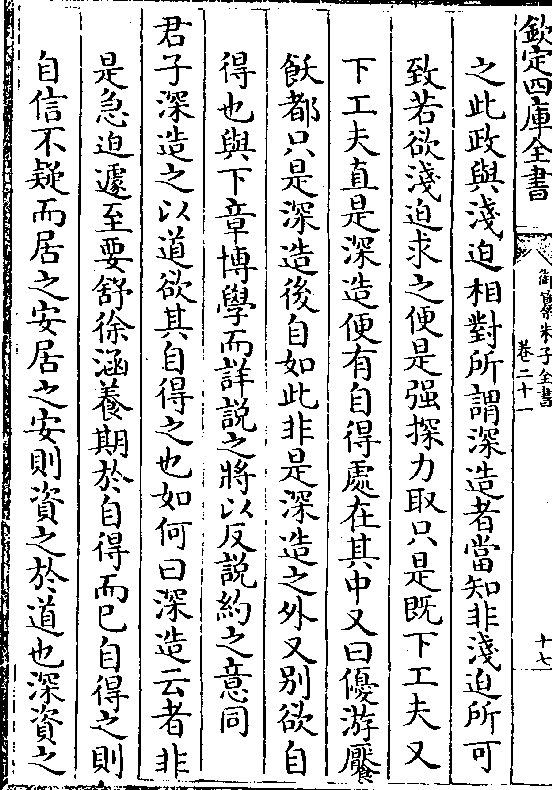 欽定四庫全書
御纂朱子全書
卷二十一
十七
之此政與淺迫相對所謂深造者當知非淺迫所可
致若欲淺迫求之便是强探力取只是既下工夫又
下工夫直是深造便有自得處在其中又曰優游饜
飫都只是深造後自如此非是深造之外又別欲自
得也與下章博學而詳説之將以反説約之意同
君子深造之以道欲其自得之也如何曰深造云者非
是急迫遽至要舒徐涵養期於自得而已自得之則
自信不疑而居之安居之安則資之於道也深資之